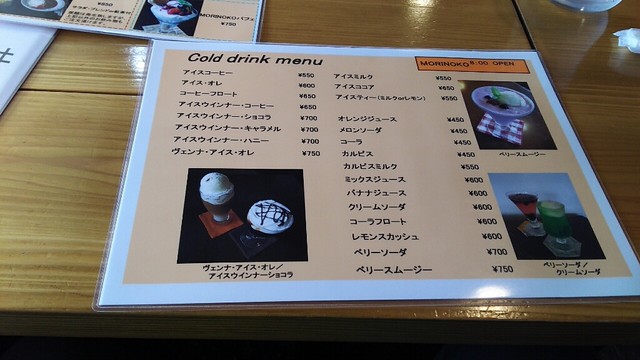 ¥850
MORINOKOパフェ
¥750
Cold drink menu
MORINOKO 8:00 OPEN
アイスコーヒー ¥550
アイス・オレ ¥600
コーヒーフロート ¥650
アイスウインナー・コーヒー ¥650
アイスウインナー・ショコラ ¥700
アイスウインナー・キャラメル ¥700
アイスウインナー・ハニー ¥700
ヴェンナ・アイス・オレ ¥750
ヴェンナ・アイス・オレ/
アイスウインナーショコラ
アイスミルク ¥550
アイスココア ¥650
アイスティー(ミルクorレモン) ¥550
オレンジジュース ¥450
メロンソーダ ¥450
コーラ ¥450
カルピス ¥450
カルピスミルク ¥550
ミックスジュース ¥600
バナナジュース ¥600
クリームソーダ ¥600
コーラフロート ¥600
レモンスカッシュ ¥600
ベリーソーダ ¥700
ベリースムージー ¥750
ベリースムージー
ベリーソーダ/
クリームソーダ